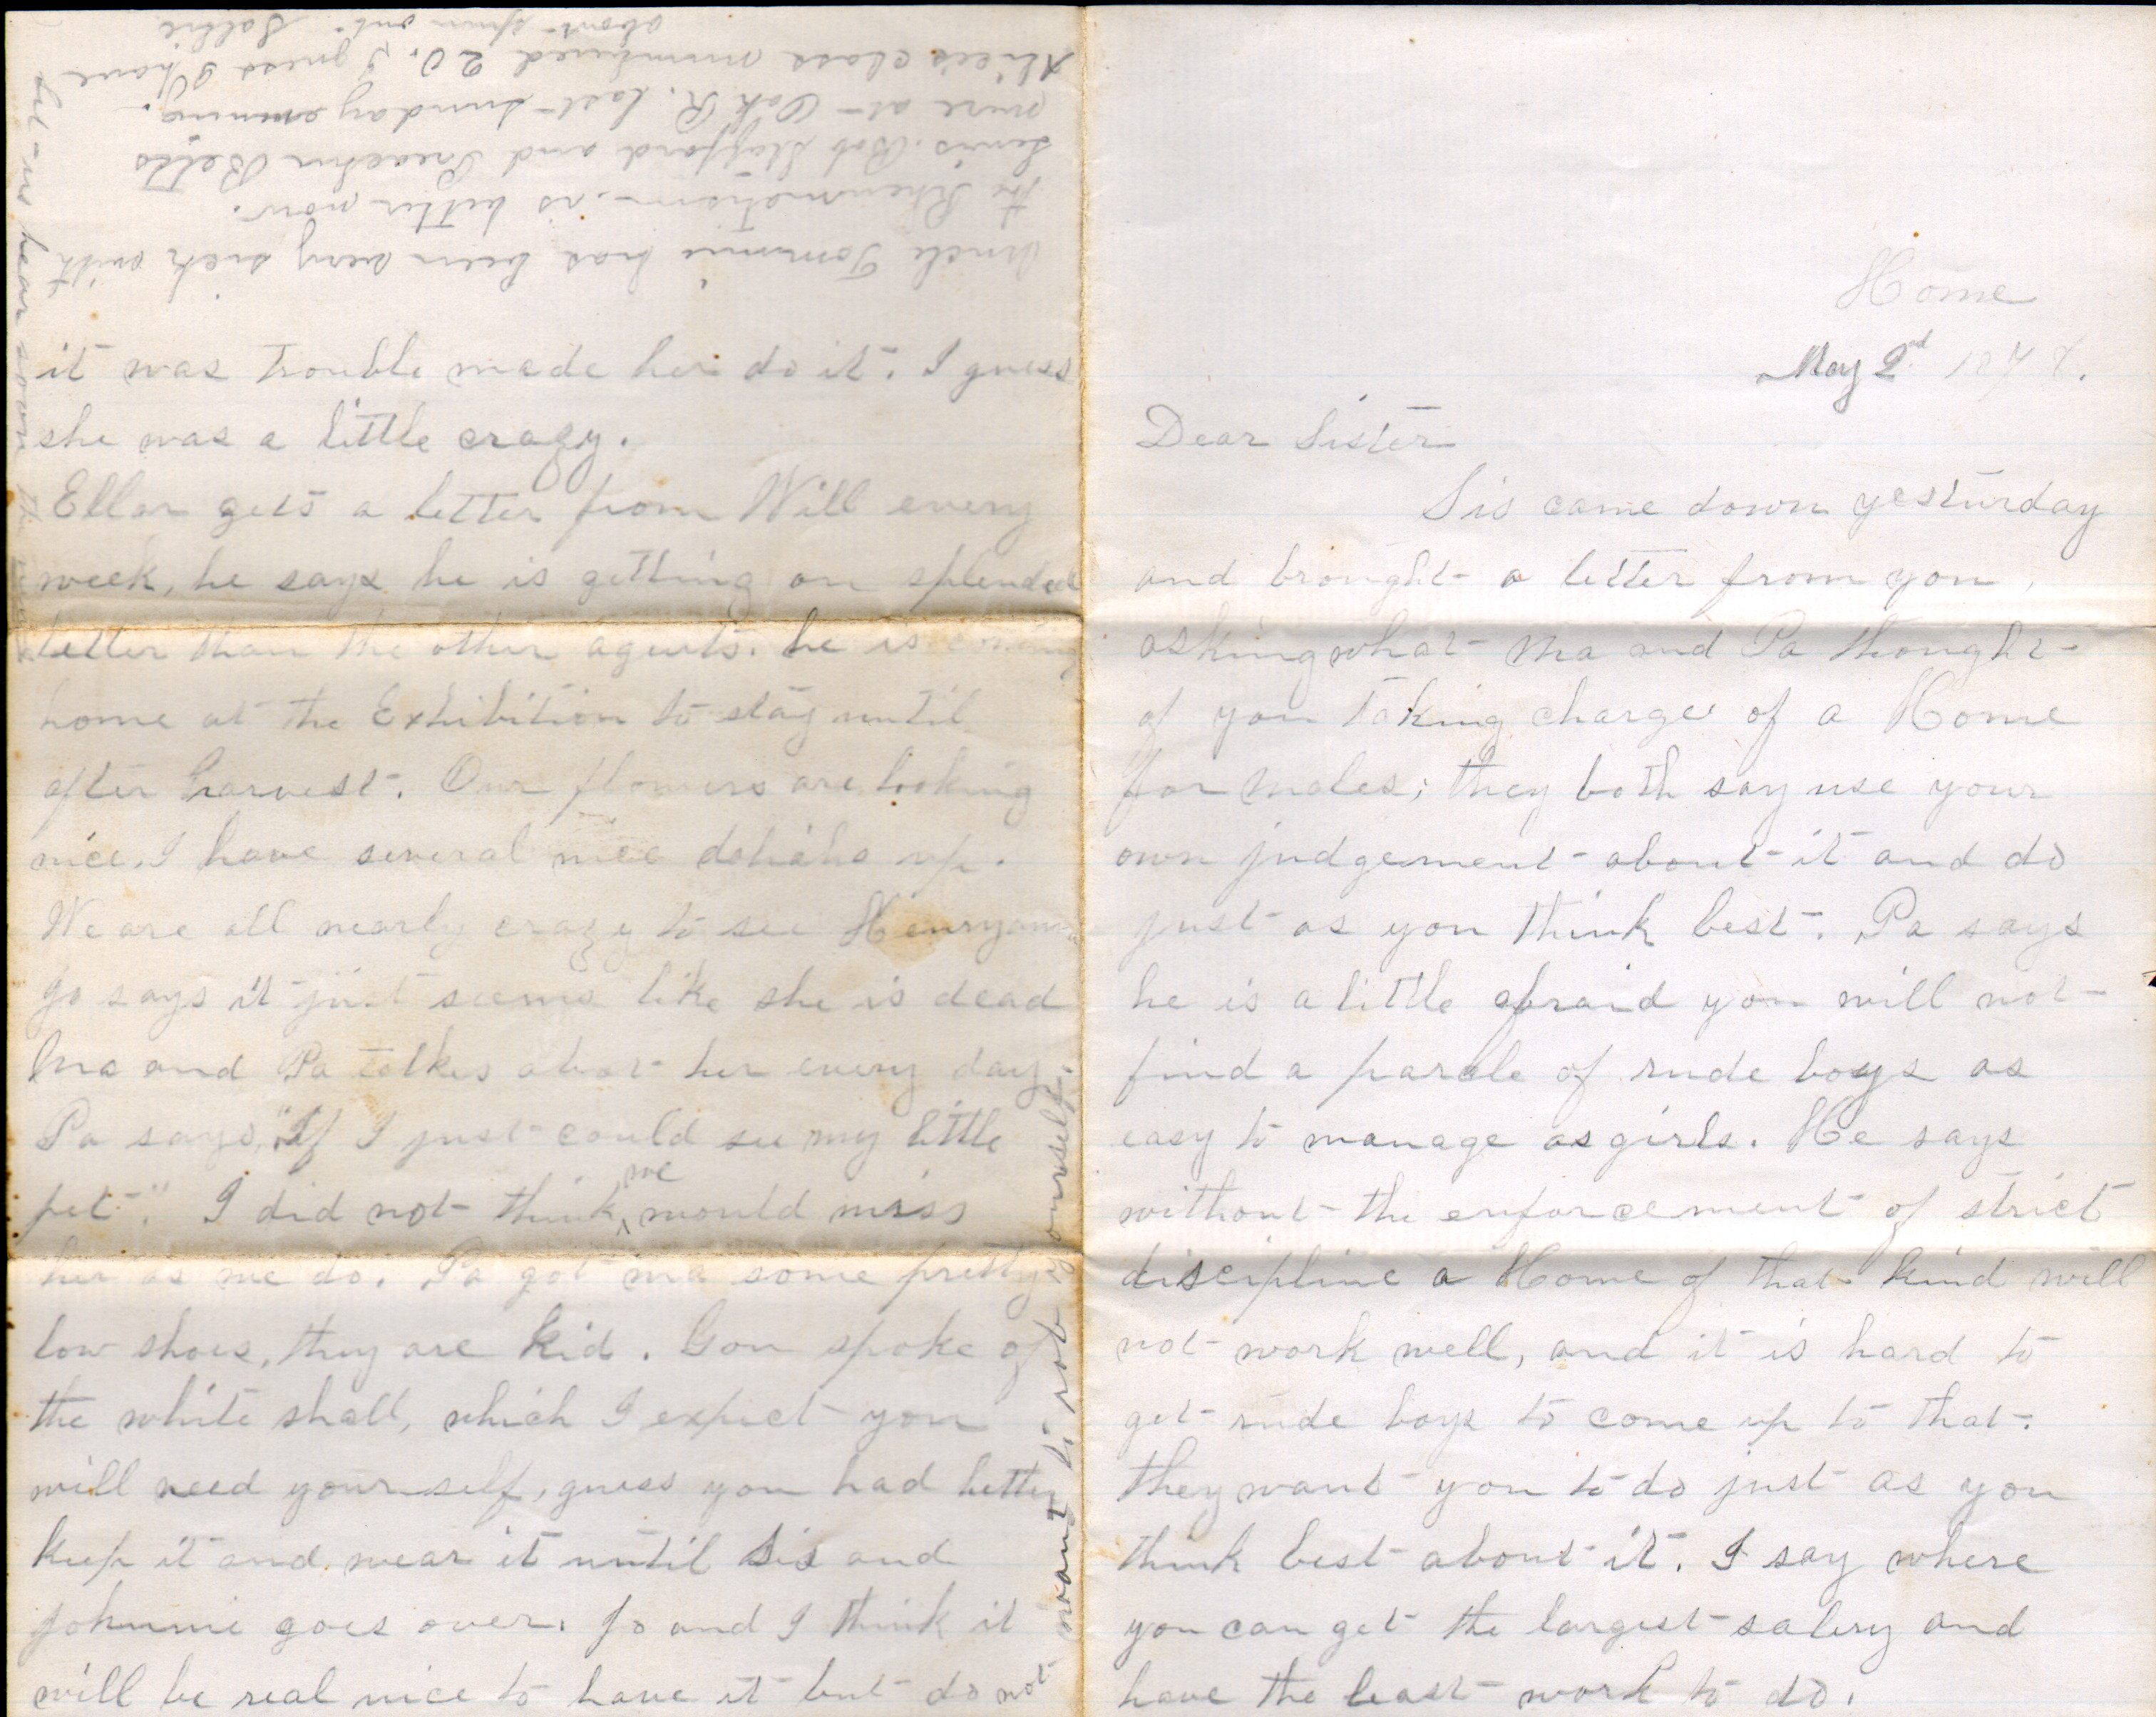 Home
May 2nd 1878.
Dear Sister
Sis came down yesturday
and brought a letter from you,
asking what Ma and Pa thought
of you taking charge of a Home
for males; they both say use your
own judgement about it and do
just as you think best. Pa says
he is a little afraid you will not
find a parcle of rude boys as
easy to manage as girls. He says
without the enforcement of strict
discipline a Home of that kind will
not work well, and it is hard to
get rude boys to come up to that.
they want you to do just as you
think best about it. I say where
you can get the largest salery and
have the least work to do.
it was trouble made her do it. I guess
she was a little crazy.
Ellar gets a letter from Will every
week, he says he is getting on splended
better than the other agents. he is coming
home at the Exhibition to stay until
after harvest. Our flowers are looking
nice. I have several nice dahiahs up.
We are all nearly crazy to see Henryanna
Jo says it just seems like she is dead
Ma and Pa talkes abot her every day.
Pa says, "If I just could see my little
pet". I did not think we would miss
her as we do. Pa got ma some pretty
low shoes, they are kid. You spoke of
the white shall, which I expect you
will need yourself, guess you had better
keep it and wear it until Sis and
Johnnie goes over. Jo and I think it
will be real nice to have it but do not
want to rob yourself.
Uncle Tommie has been very sick with
the Rheumatism, is better now.
Lewis. Bob Stafford and Preacher Betts
were at Oak R. last Sunday evening.
Alices class numbered 20. I guess I have
about spun out. Sallie
Let us hear soon